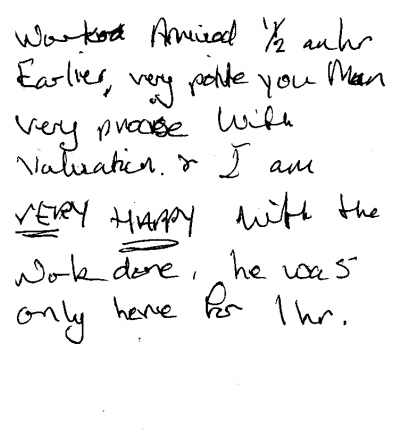 Worked Arrived 1/2 an hr
Earlier, very polite you Man
very precise With
Valuation. & I am
VERY HAPPY with the
Work done, he was
only here for 1 hr.